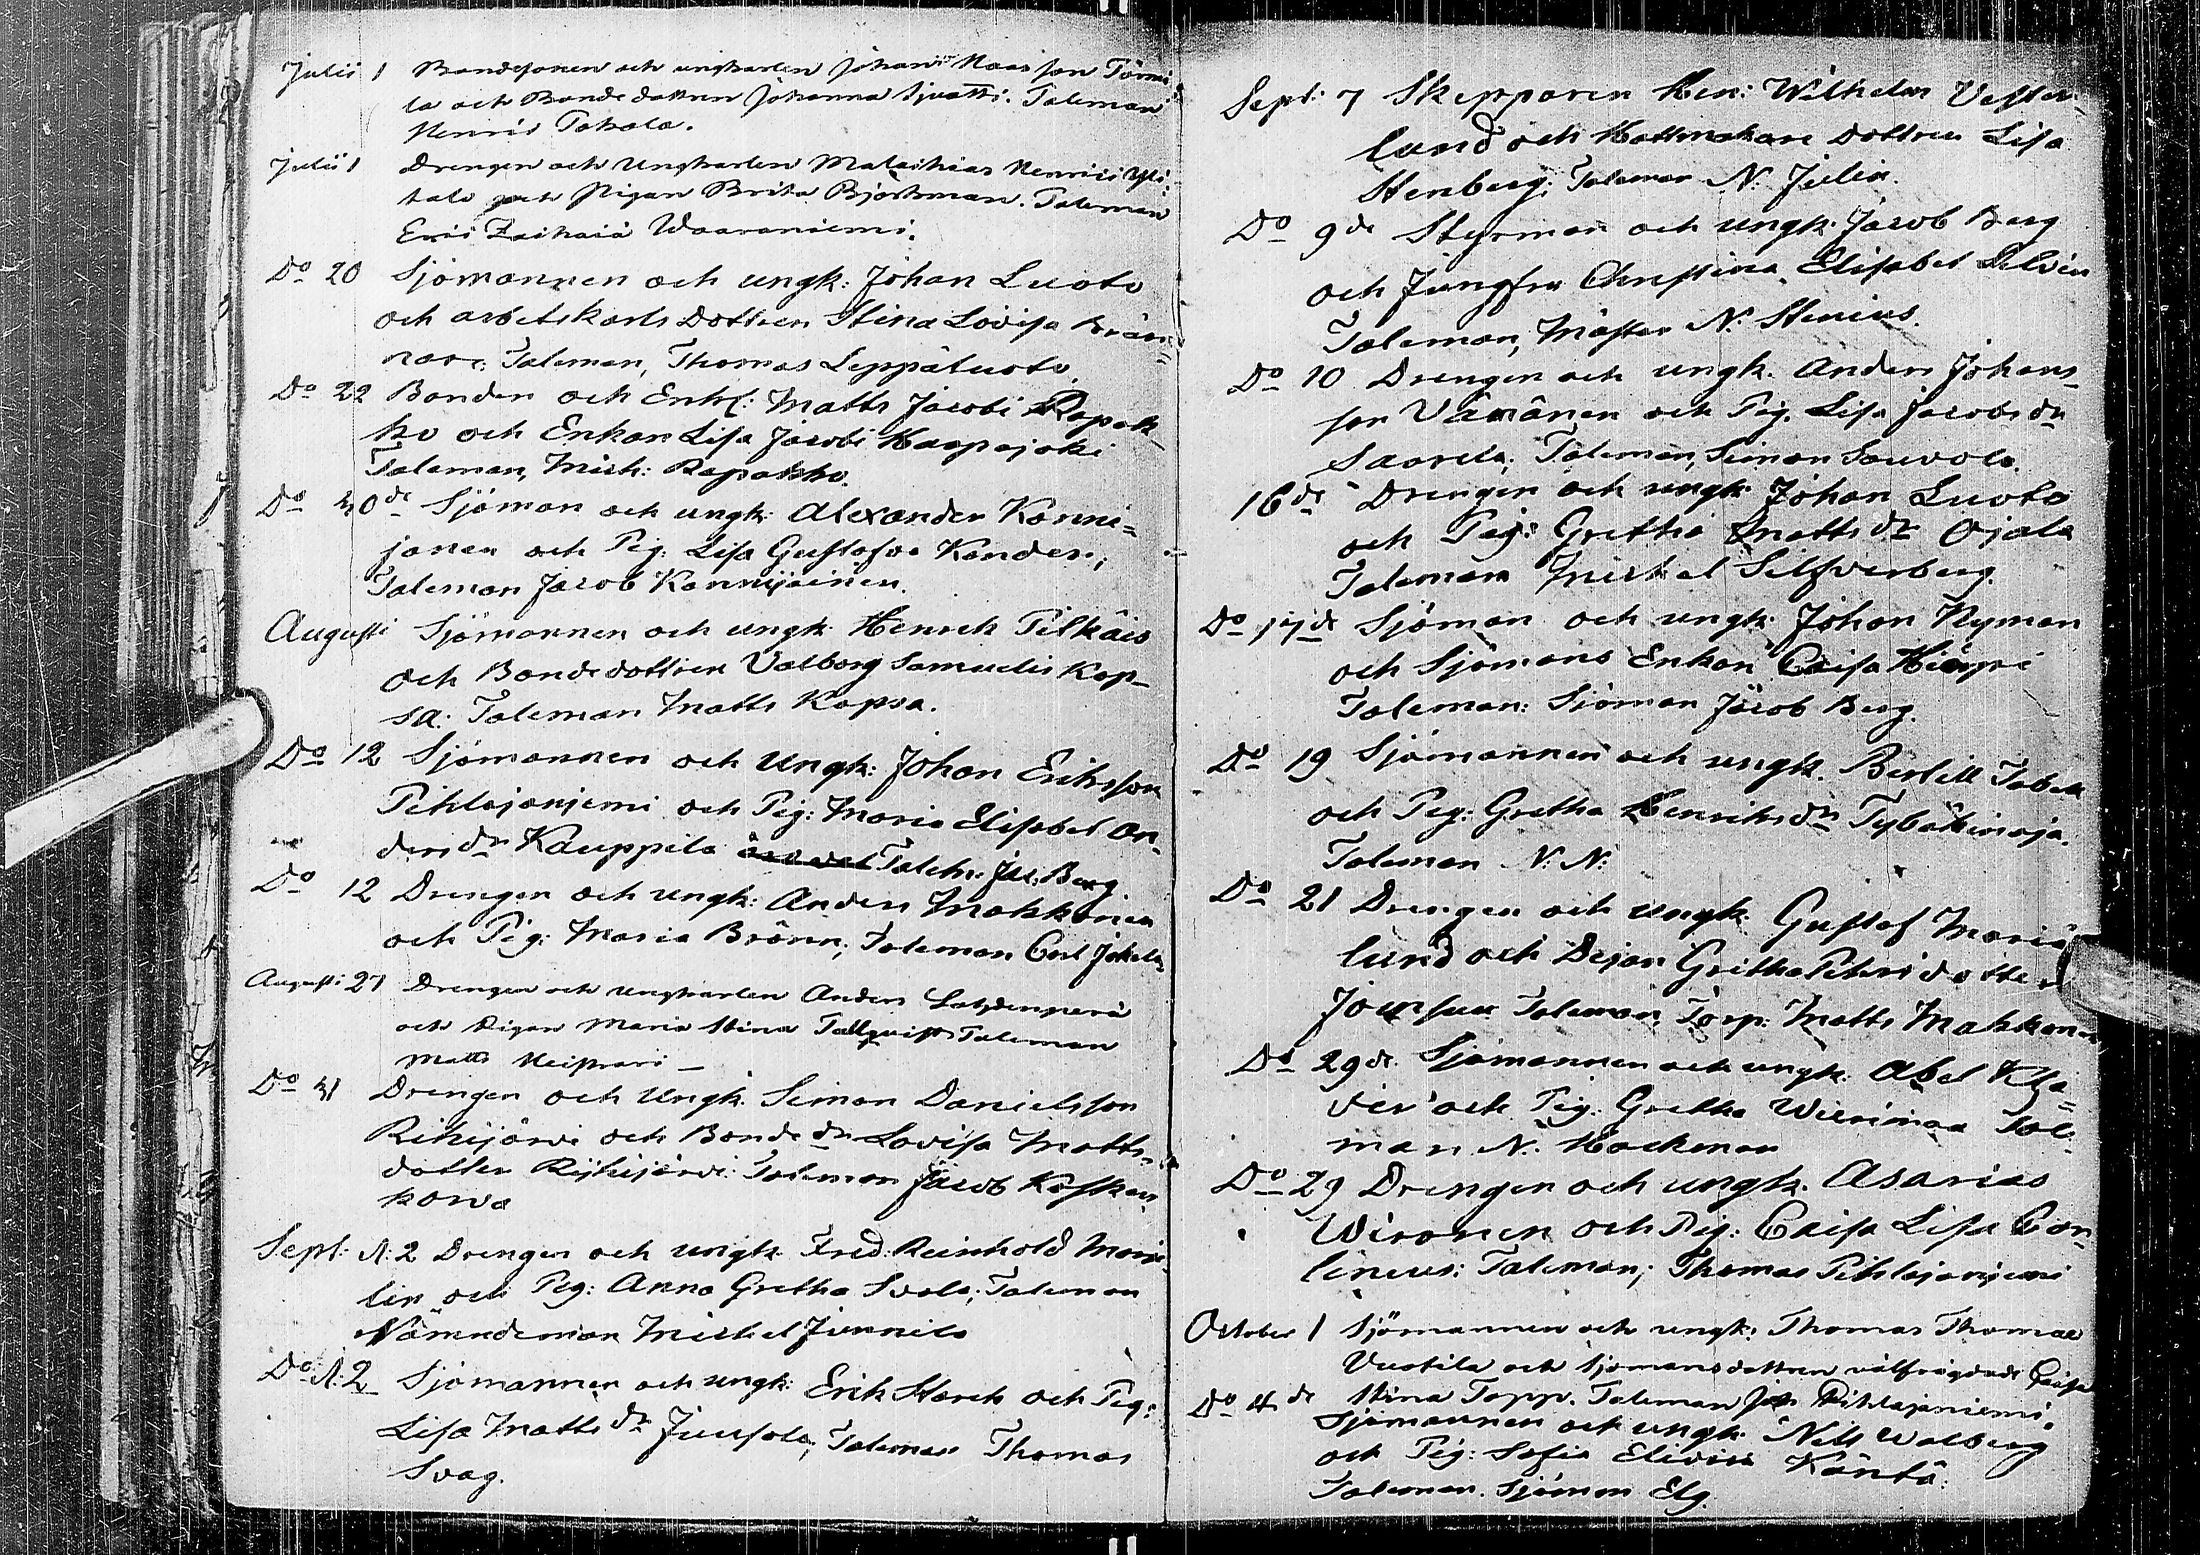 Julii 1 Bondesonen och ungkarlen Johan Maas son Törmä
la och Bonde dottren Johanna Tjuatti. Taleman
Henric Tokola.
Julii 1 Drengen och Ungkarlen Malachias Henrici Yli
talo och Pigan Brita Björkman. Taleman
Eric Zachaiæ Waaraniemi.
Do 20 Sjömannen och ungk: Johan Luoto
och arbetskarls Dottren Stina Lovisa Brän-
nare: Taleman, Thomas Leppäluoto
Do 22 Bonden och Enkl: Matts Jacobi Rapak-
ko och Enkan Lisa Jacobi Haapajoki
Taleman, Mich: Rapakko.
Do 30de Sjöman och ungk: Alexander Konni-
jänen och Pig: Lisa Gustafva Kander;
Taleman Jacob Konnijäinen.
Augusti Sjömannen och ungk Henrik Pilkäis
och Bondedottren Valborg Samuelis Kop-
sa: Taleman Matts Kopsa.
Do 12 Sjömannen och Ungk: Johan Eriksson
Pihlajanjemi och Pig: Maria Elisabet An-
ders dr Kauppila Talem: Jac: Berg.
Do 12 Drengen och ungk: Anders Makkonen
och Pig: Maria Brönn; Taleman Carl Jokela
Augusti 27 Drengen och ungkarlen Anders Lahdenperä
och Pigan Maria Stina Tallqvist Taleman
Matts
Do 31 Drengen och Ungk. Simon Danielsson
Rihijärvi och Bonde dr Lovisa Matts-
dotter Rihijärvi: Taleman Jacob Kosken
korva
Sept: A: 2 Drengen och ungk Fred: Reinhold More-
lin och Pig: Anna Gretha Svala; Taleman
Nämndeman Michel Junnila
Do A: 2 Sjömannen och ungk: Erik Starck och Pig:
Lisa Matts dr Juusola; Taleman Thomas
Svag.
Sept: 7 Skepparen Hen: Wilhelm Vester-
lund och Hattmakare Dottren Lisa
Stenberg; Taleman N: Julin.
Do 9de Styrman och ungk: Jacob Berg
och Jungfru Christina Elisabet
Taleman, Mäster N: Stenius.
Do 10 Drengen och ungk. Anders Johans-
son Väänänen och Pig. Lisa Jacobs dr
Saarela; Taleman, Simon Sauvola.
16de Drengen och ungk: Johan Luoto
och Pig: Gretha Matts dr Ojala
Taleman Michel Silfverberg.
Do 17de Sjöman och ungk: Johan Nyman
och Sjömans Enkan Caisa
Taleman: Sjöman Jacob Berg.
Do 19 Sjömannen och ungk. Bertill Tabell
och Pig: Gretha Henriks dr Tyböktinoja.
Taleman N: N:
Do 21 Drengen och ungk Gustaf Maria
lund och Pigan Gretha Pehrsdotter
Taleman, Torp: Matts Makkonen
Do 29de Sjömannen och ungk: Abel Kla-
ver och Pig: Gretha Wierimaa Tal-
man N: Hackman
Do 29 Drengen och ungk. Asarias
Wironen och Pig: Caisa Lisa Car-
lineus: Taleman; Thomas Pihlajanjemi
October 1 Sjömannen och ungk: Thomas Thomae
Vuotila och Sjömansdottren välfrägdade Caisa
Stina Topp. Taleman Joh Pihlajaniemi.
Do 4de Sjömannen och ungk: Nils Walberg
och Pig: Sofia Käntä:
Taleman. Sjöman Elg